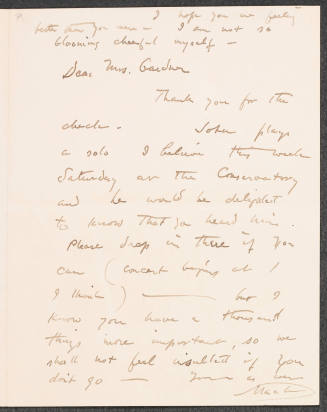 I hope you are feeling
better than you were - I am not so
blooming cheerful myself -
Dear Mrs. Gardner
Thank you for the
check. John plays
a solo I believe this week
Saturday at the Conservatory
and he would be delighted
to know that you heard him.
Please drop in there if you
can (concert begins at 1
I think) — but I
know you have a thousand
things more important, so we
shall not feel insulted if you
don't go — Yours as ever